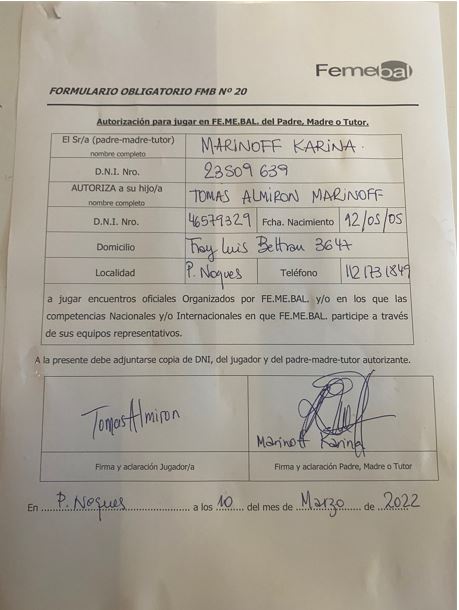 Femebal
FORMULARIO OBLIGATORIO FMB Nº 20
Autorización para jugar en FE.ME.BAL. del Padre, Madre o Tutor.
El Sr/a (padre-madre-tutor) MARINOFF KARINA.
nombre completo
D.N.I. Nro. 23509639
AUTORIZA a su hijo/a TOMAS ALMIRON MARINOFF
nombre completo
D.N.I. Nro. 46579329 Fcha. Nacimiento 12/05/05
Domicilio Fray Luis Beltran 3647
Localidad P. Nogues Teléfono 1121731849
a jugar encuentros oficiales Organizados por FE.ME.BAL. y/o en los que las
competencias Nacionales y/o Internacionales en que FE.ME.BAL. participe a través
de sus equipos representativos.
A la presente debe adjuntarse copia de DNI, del jugador y del padre-madre-tutor autorizante.
Tomas Almiron
Marinoff Karina
Firma y aclaración Jugador/a Firma y aclaración Padre, Madre o Tutor
En P. Nogues a los 10 del mes de Marzo de 2022